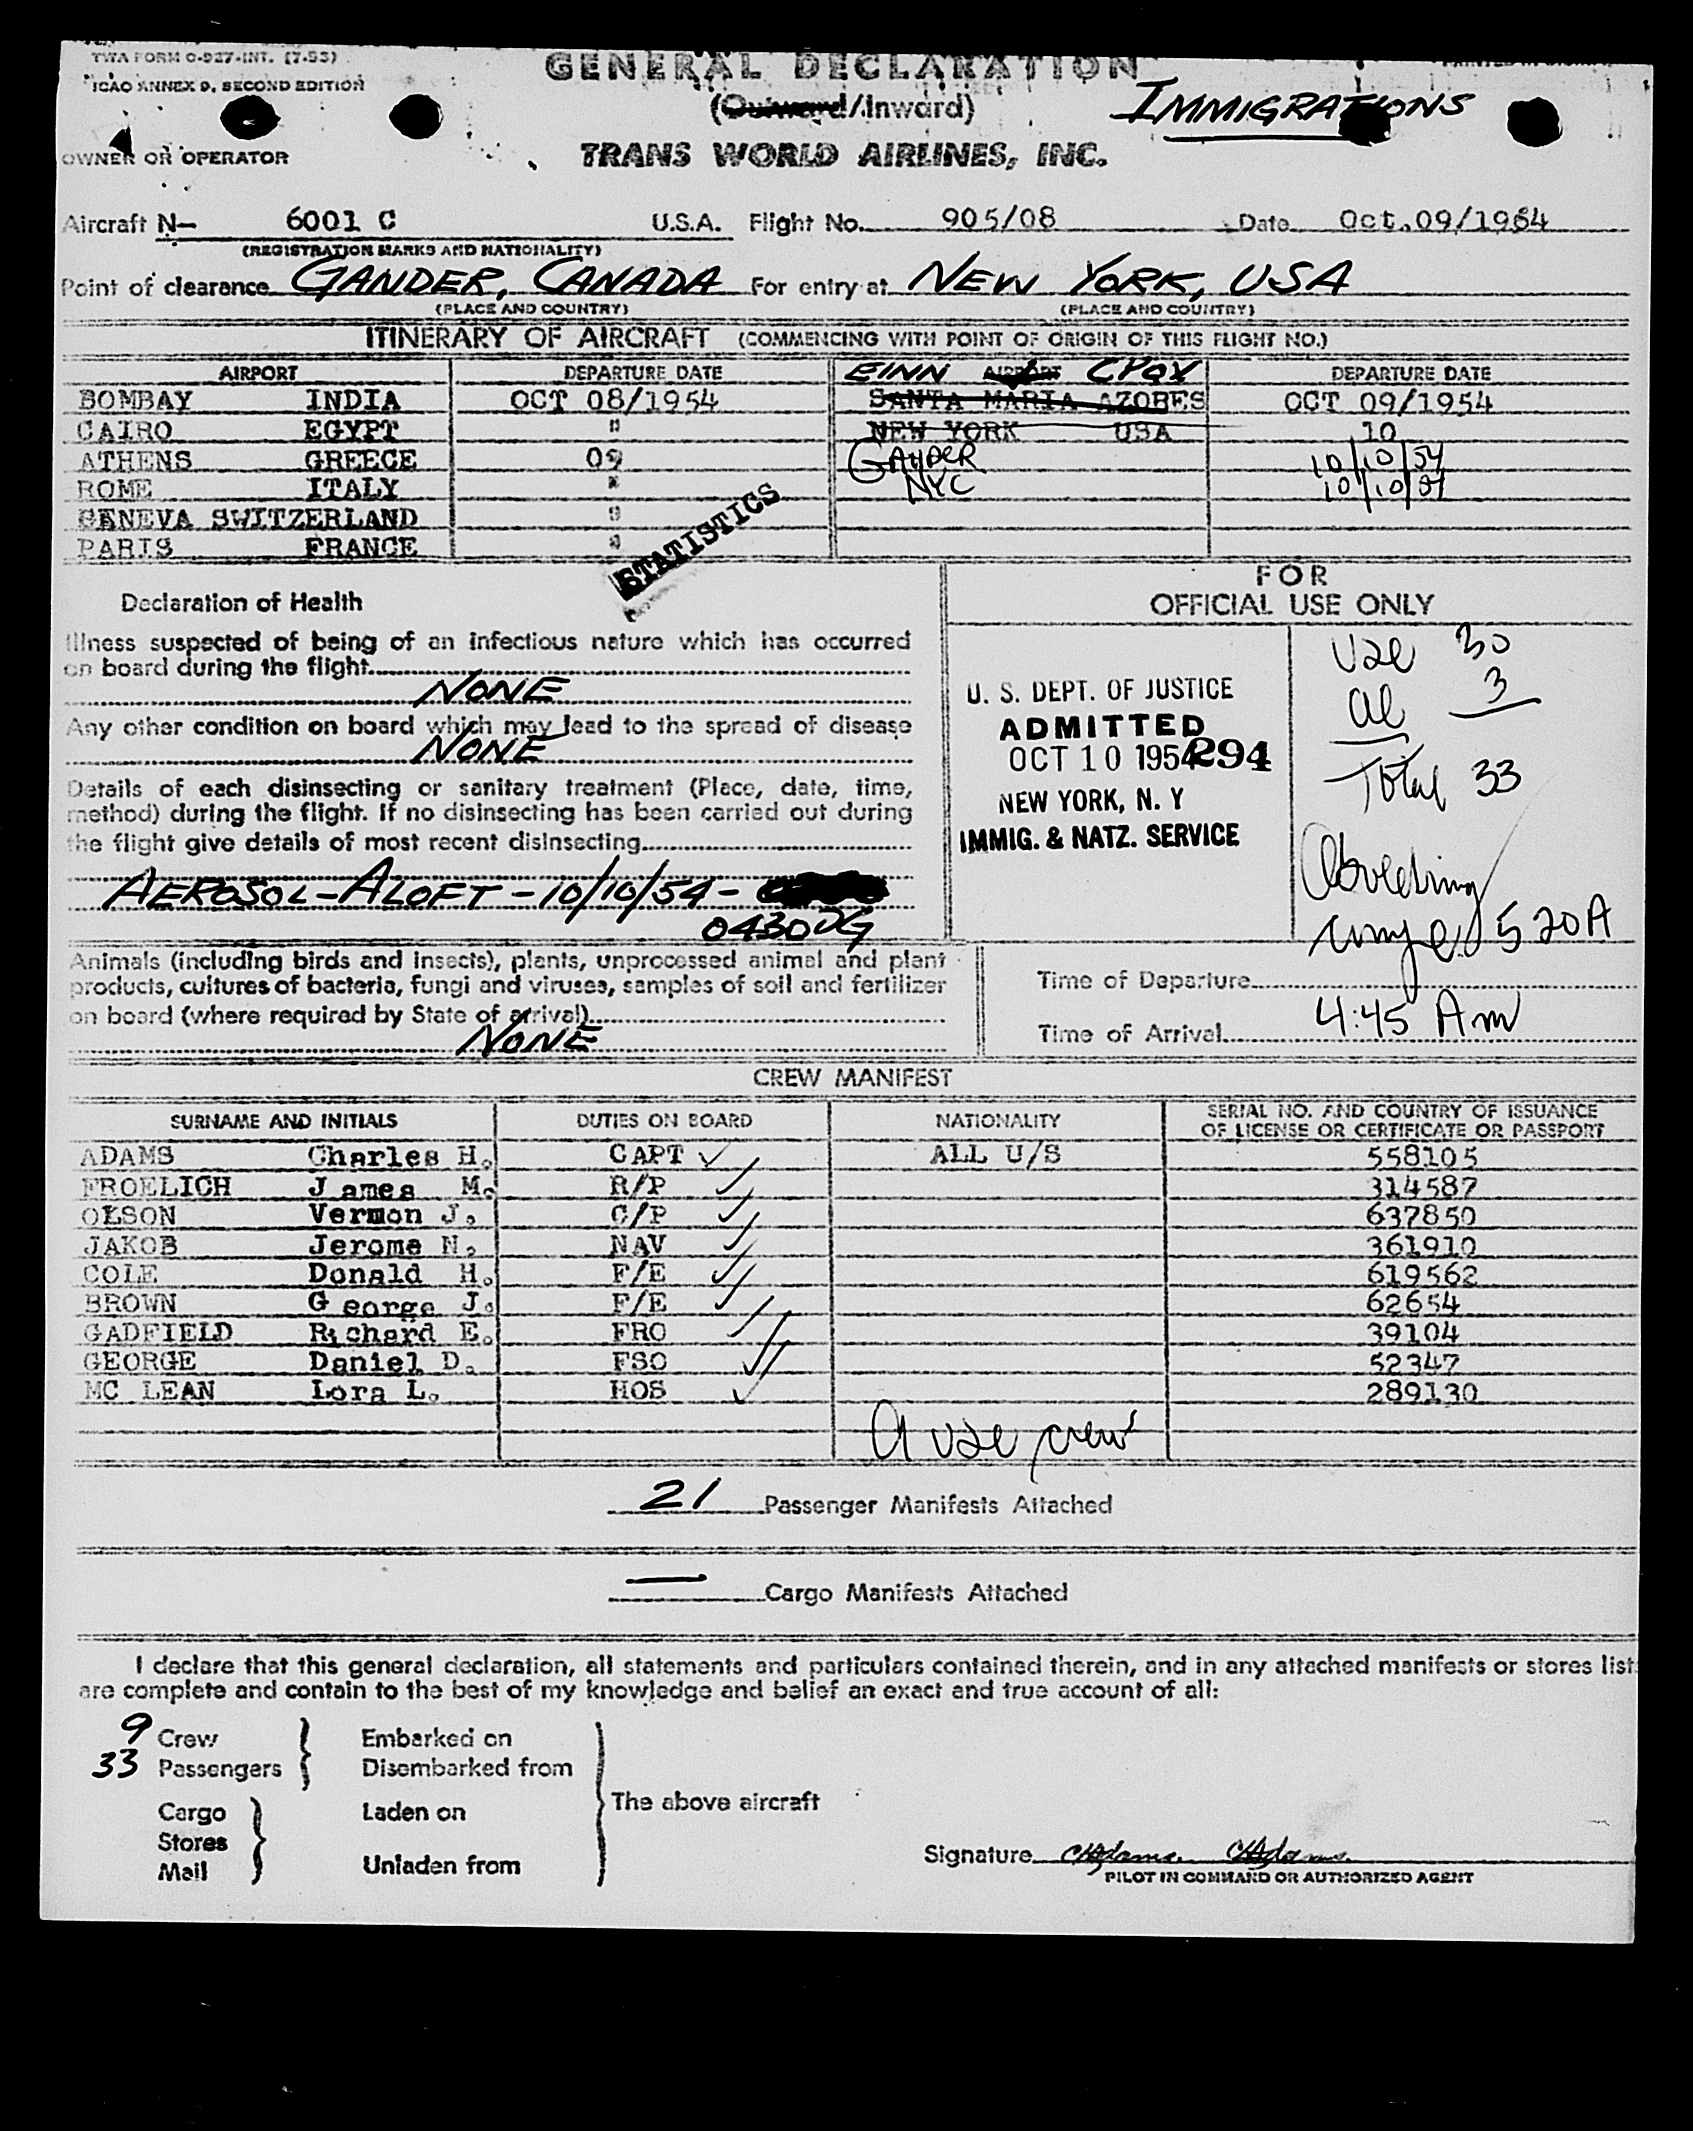 TWA FORM O-927-INT. (7-53)
ICAO ANNEX 9, SECOND EDITION
GENERAL DECLARATION
(Outward/Inward)
IMMIGRATIONS
OWNER OR OPERATOR
TRANS WORLD AIRLINES, INC.
Aircraft N- 6001 C U.S.A. Flight No. 905/08 Date Oct.09/1954
(REGISTRATION MARKS AND NATIONALITY)
Point of clearance GANDER, CANADA For entry at NEW YORK, USA
(PLACE AND COUNTRY) (PLACE AND COUNTRY)
ITINERARY OF AIRCRAFT (COMMENCING WITH POINT OF ORIGIN OF THIS FLIGHT NO.)
AIRPORT DEPARTURE DATE EINN AIRPORT CYQX DEPARTURE DATE
BOMBAY INDIA OCT 08/1954 SANTA MARIA AZORES OCT 09/1954
CAIRO EGYPT " NEW YORK USA 10
ATHENS GREECE 09 GANDER 10/10/54
ROME ITALY " NYC 10/10/54
GENEVA SWITZERLAND "
PARIS FRANCE "
STATISTICS
Declaration of Health
Illness suspected of being of an infectious nature which has occurred
on board during the flight
NONE
Any other condition on board which may lead to the spread of disease
NONE
Details of each disinsecting or sanitary treatment (Place, date, time,
method) during the flight. If no disinsecting has been carried out during
the flight give details of most recent disinsecting
AEROSOL-ALOFT-10/10/54-
0430
FOR
OFFICIAL USE ONLY
U. S. DEPT. OF JUSTICE
ADMITTED
OCT 10 1954 294
NEW YORK, N. Y
IMMIG. & NATZ. SERVICE
30
al 3
Total 33
520A
Animals (including birds and insects), plants, unprocessed animal and plant
products, cultures of bacteria, fungi and viruses, samples of soil and fertilizer
on board (where required by State of arrival)
NONE
Time of Departure
Time of Arrival 4:45 Am
CREW MANIFEST
SURNAME AND INITIALS DUTIES ON BOARD NATIONALITY SERIAL NO. AND COUNTRY OF ISSUANCE
OF LICENSE OR CERTIFICATE OR PASSPORT
ADAMS Charles H. CAPT ALL U/S 558105
FROELICH James M. R/P 314587
OLSON Vermon J. C/P 637850
JAKOB Jerome N. NAV 361910
COLE Donald H. F/E 619562
BROWN George J. F/E 62654
GADFIELD Richard E. FRO 39104
GEORGE Daniel D. FSO 52347
MC LEAN Lora L. HOS 289130
crew
21 Passenger Manifests Attached
Cargo Manifests Attached
I declare that this general declaration, all statements and particulars contained therein, and in any attached manifests or stores list
are complete and contain to the best of my knowledge and belief an exact and true account of all:
9 Crew
33 Passengers
Embarked on
Disembarked from
Cargo
Stores
Mail
Laden on
Unladen from
The above aircraft
Signature CHAdams. CHAdams.
PILOT IN COMMAND OR AUTHORIZED AGENT